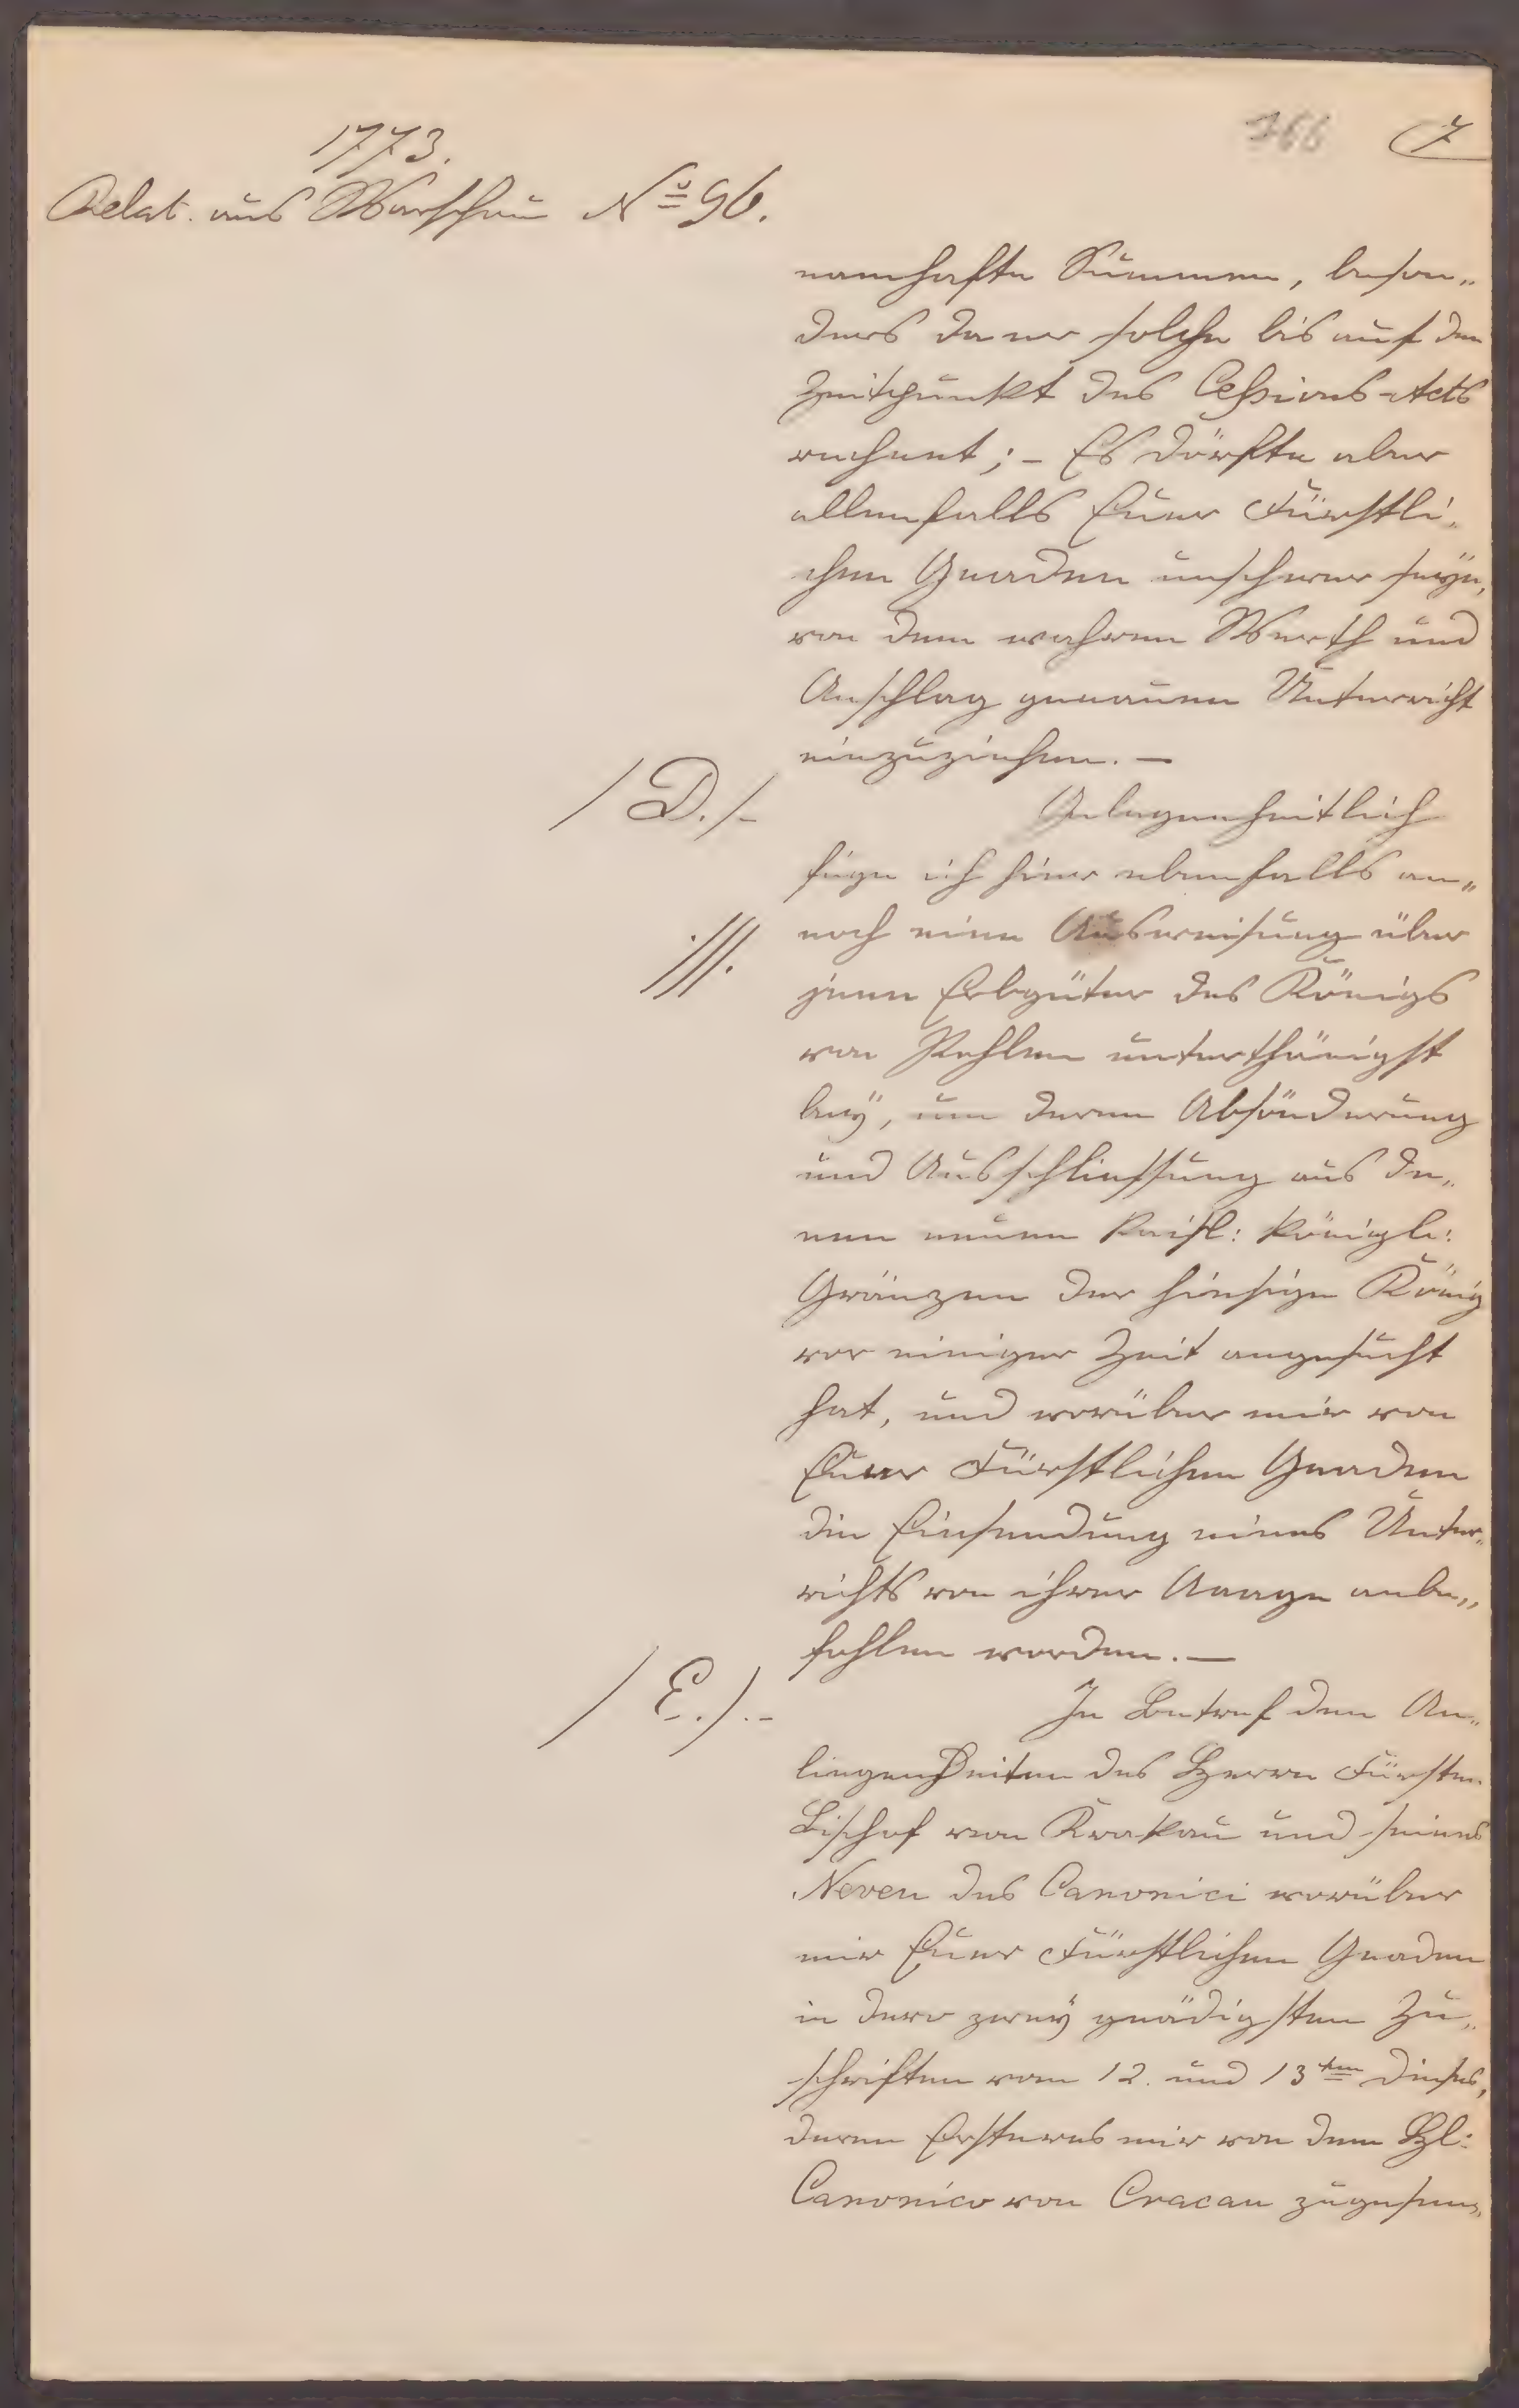 1773.
766 7
Relat. aus Warschau No 96.
namhafte Summen, beson„
ders da er solche bis auf den
Zeitpunkt des Ceßions-Acts
rechnet; – Es dörfte aber
allenfalls Euer Fürstli„
chen Gnaden unschwer seyn,
von dem wahren Werth und
Anschlag genauen Unterricht
einzuziehen. —
/ D. /-
Gelegenheitlich
füge ich hier ebenfalls an„
noch eine Ausweisung über
.///.
jene Erbgüter des Königs
von Pohlen unterthänigst
bey, um deren Absönderung
und Ausschliessung aus de„
nen neuen Kaisl: königle:
Gränzen der hiesige König
vor einiger Zeit angesucht
hat, und worüber mir von
Euer Fürstlichen Gnaden
die Einsendung eines Unter„
richts von ihrer Aage anbe„
fohlen worden. —
/ E. /.-
In Betref den An„
liegenheiten des Herrn Fürsten
Bischof von Krakau und seines
Neven des Canonici worüber
mir Euer Fürstlichen Gnaden
in dero zwey gnädigsten Zu„
schriften vom 12. und 13ten dieses,
deren Ersteres mir von dem Hl:
Canonico von Cracau zugesen„